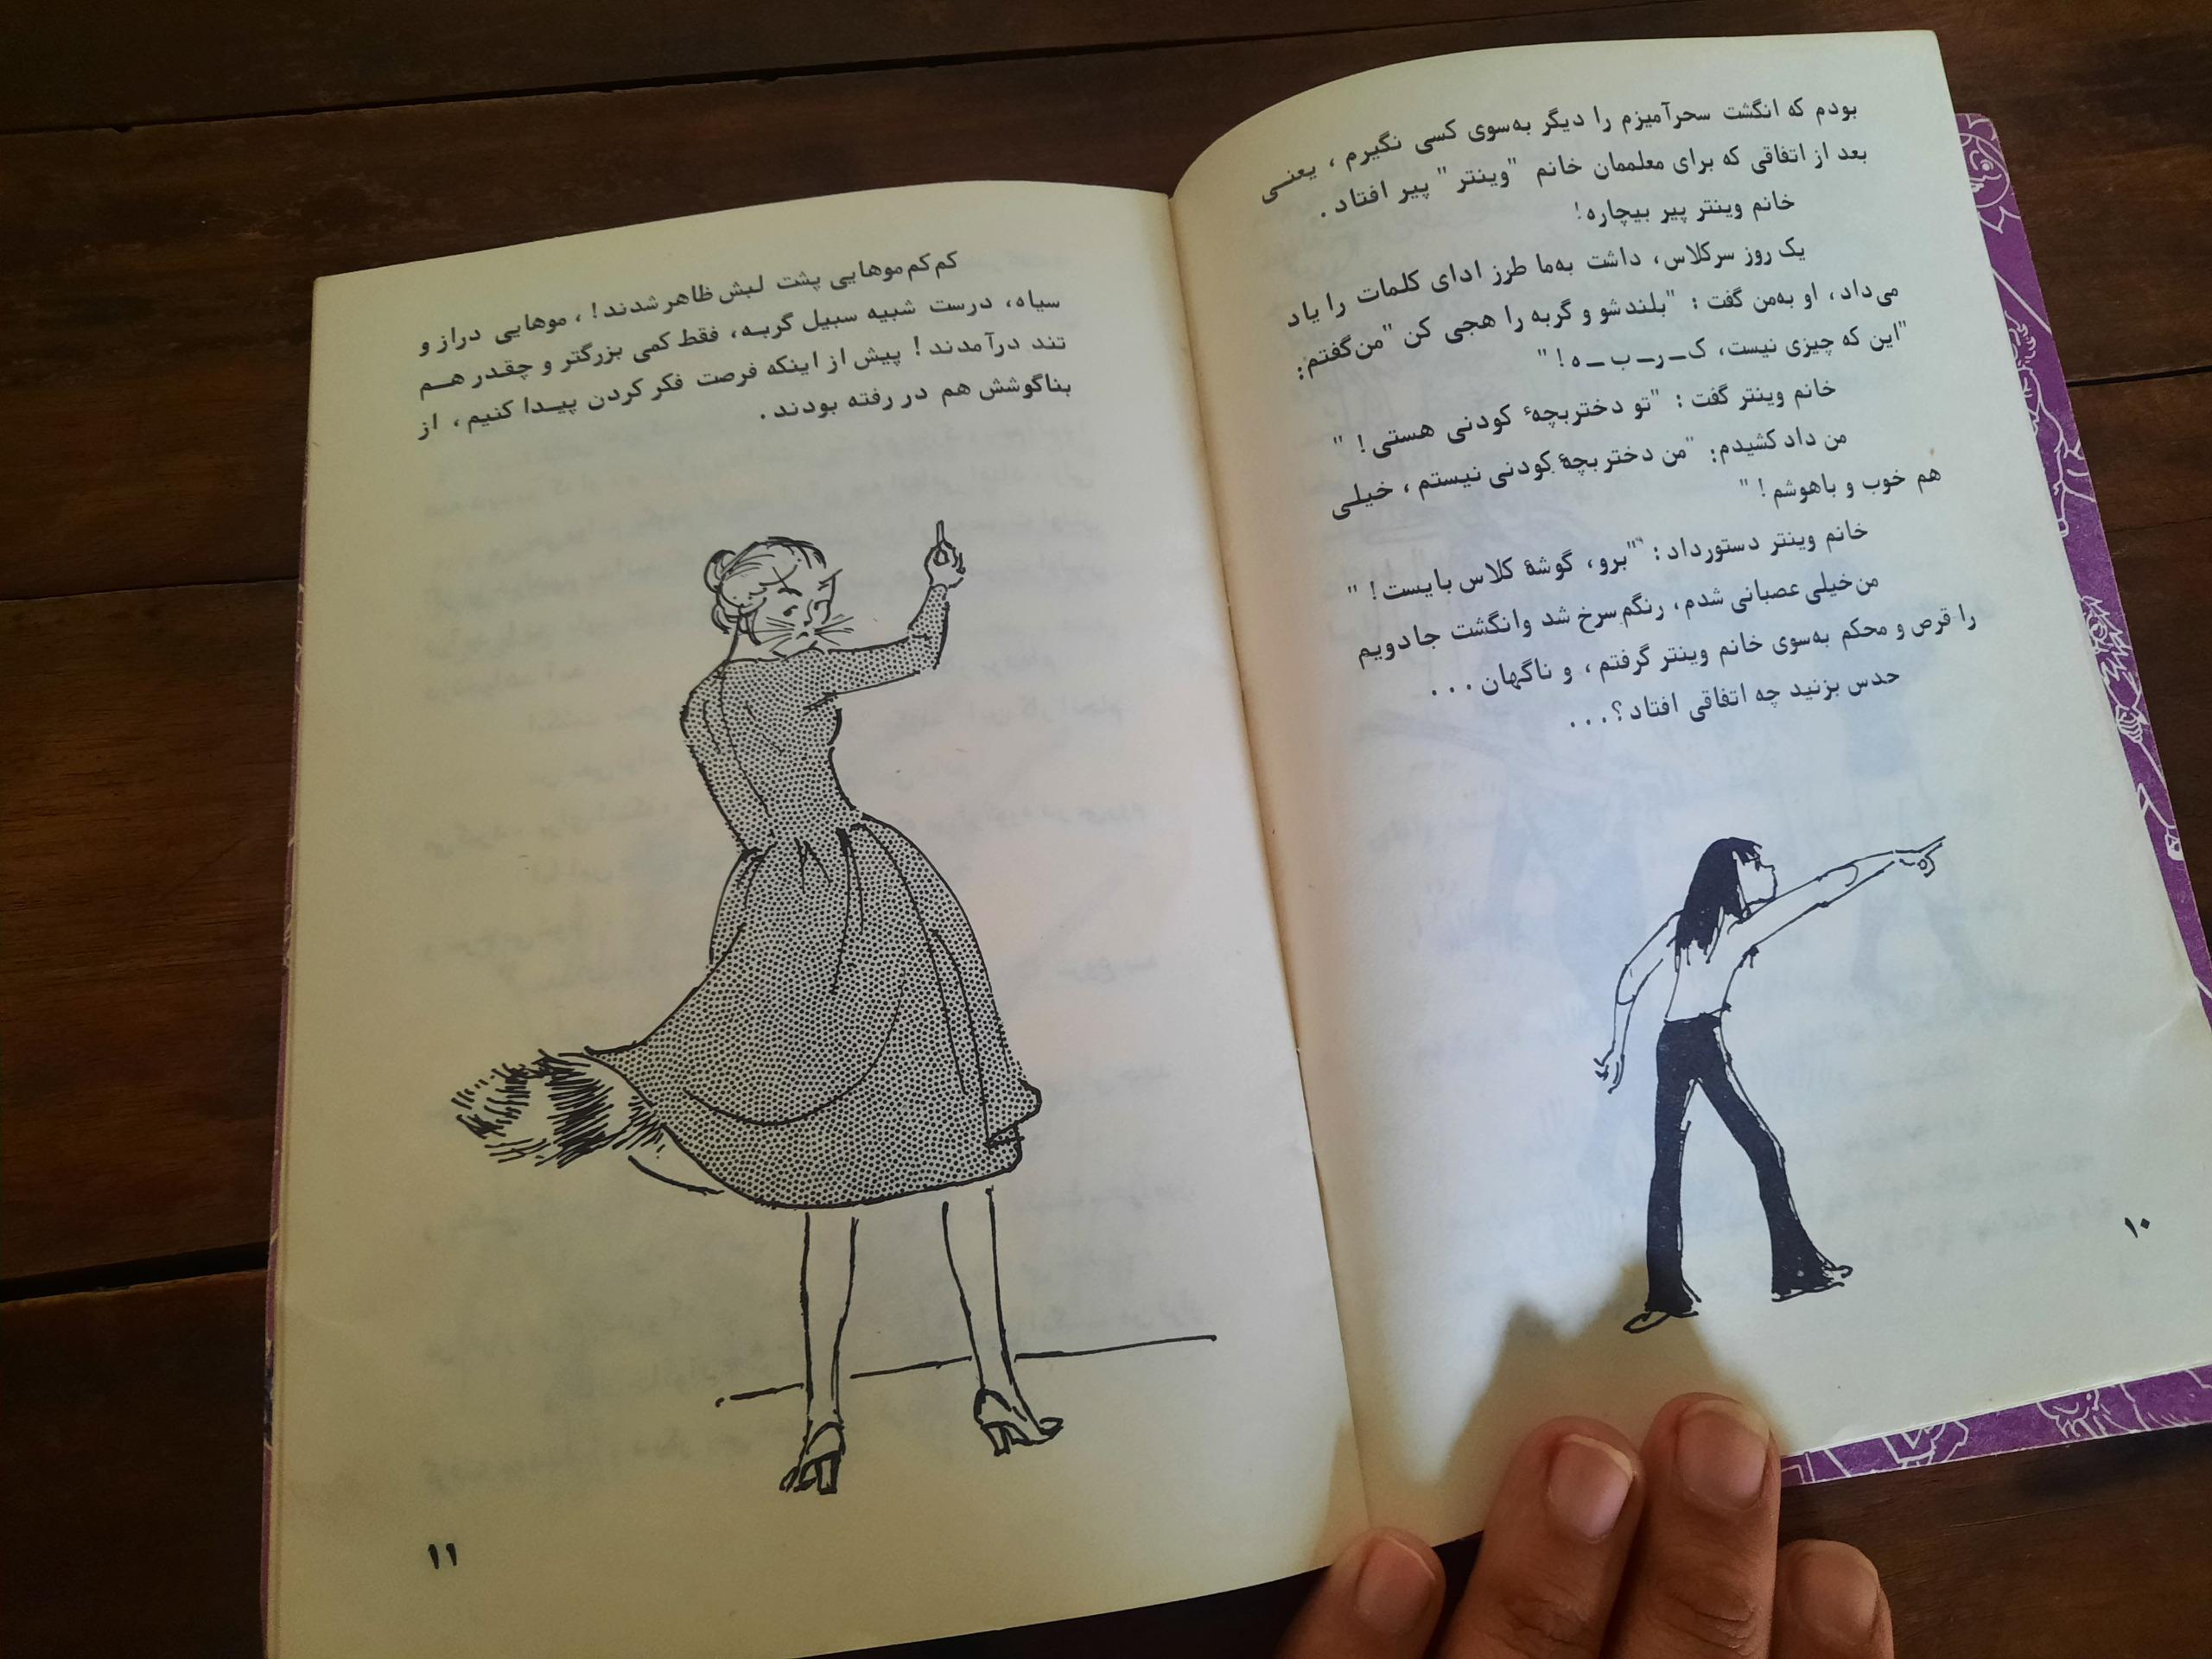 بودم که انگشت سحرآمیزم را دیگر به‌سوی کسی نگیرم ، یعنی
بعد از اتفاقی که برای معلممان خانم "وینتر" پیر افتاد .
خانم وینتر پیر بیچاره!
یک روز سرکلاس، داشت به‌ما طرز ادای کلمات را یاد
می‌داد، او به‌من گفت : "بلندشو و گربه را هجی کن "من‌گفتم:
"این که چیزی نیست، ک ــ ر ــ ب ــ ه ! "
خانم وینتر گفت : "تو دختربچهٔ کودنی هستی ! "
من داد کشیدم: "من دختربچهٔ کودنی نیستم ، خیلی
هم خوب و باهوشم ! "
خانم وینتر دستورداد : "برو، گوشهٔ کلاس بایست ! "
من‌خیلی عصبانی شدم، رنگم سرخ شد وانگشت جادویم
را قرص و محکم به‌سوی خانم وینتر گرفتم ، و ناگهان . . .
حدس بزنید چه اتفاقی افتاد ؟ . . .
۱۰
کم‌کم موهایی پشت لبش ظاهر شدند ! ، موهایی دراز و
سیاه، درست شبیه سبیل گربه، فقط کمی بزرگتر و چقدر هم
تند درآمدند ! پیش از اینکه فرصت فکر کردن پیدا کنیم ، از
بناگوشش هم در رفته بودند .
۱۱